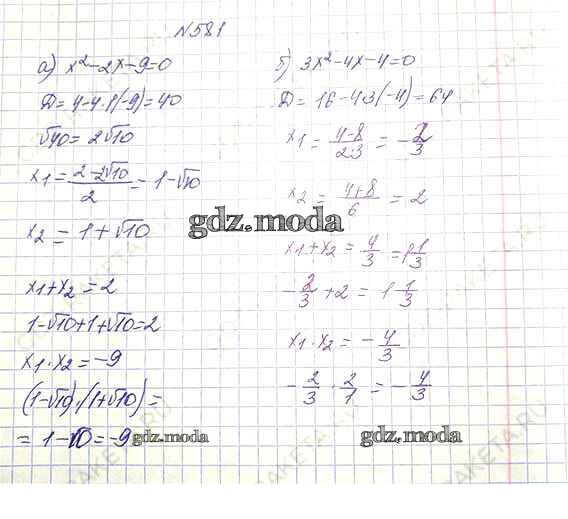 N581
а) x²-2x-9=0
D=4-4·1(-9)=40
√40=2√10
x1=(2-2√10)/2=1-√10
x2=1+√10
x1+x2=2
1-√10+1+√10=2
x1·x2=-9
(1-√10)·(1+√10)=
=1-10=-9
б) 3x²-4x-4=0
D=16-4·3(-4)=64
x1=(4-8)/(2·3)=-2/3
x2=(4+8)/6=2
x1+x2=4/3=1 1/3
-2/3+2=1 1/3
x1·x2=-4/3
-2/3·2/1=-4/3
gdz.moda
gdz.moda
gdz.moda